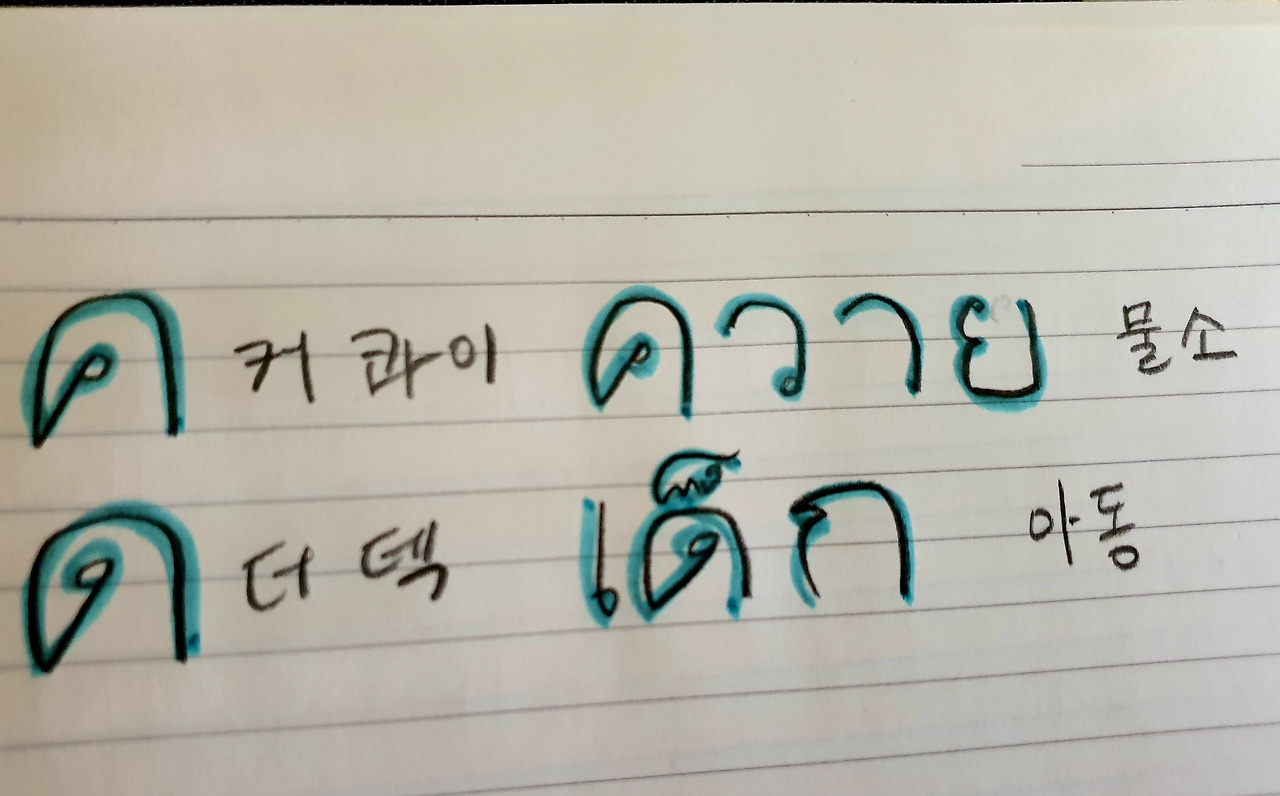 ค 커 콰이 ควาย 물소
ด 더 덱 เด็ก 아동